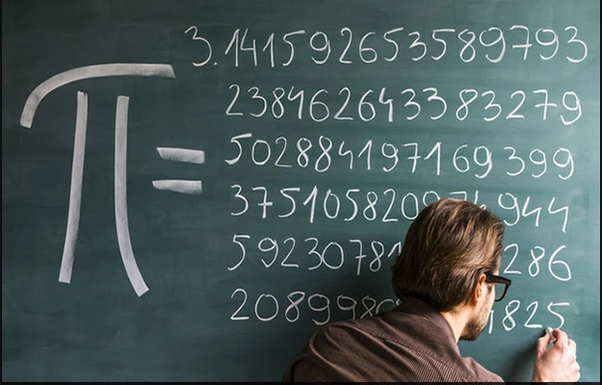 π =
3.141592653589793
238462643383279
502884197169399
3751058209 944
5923078 286
208998 825